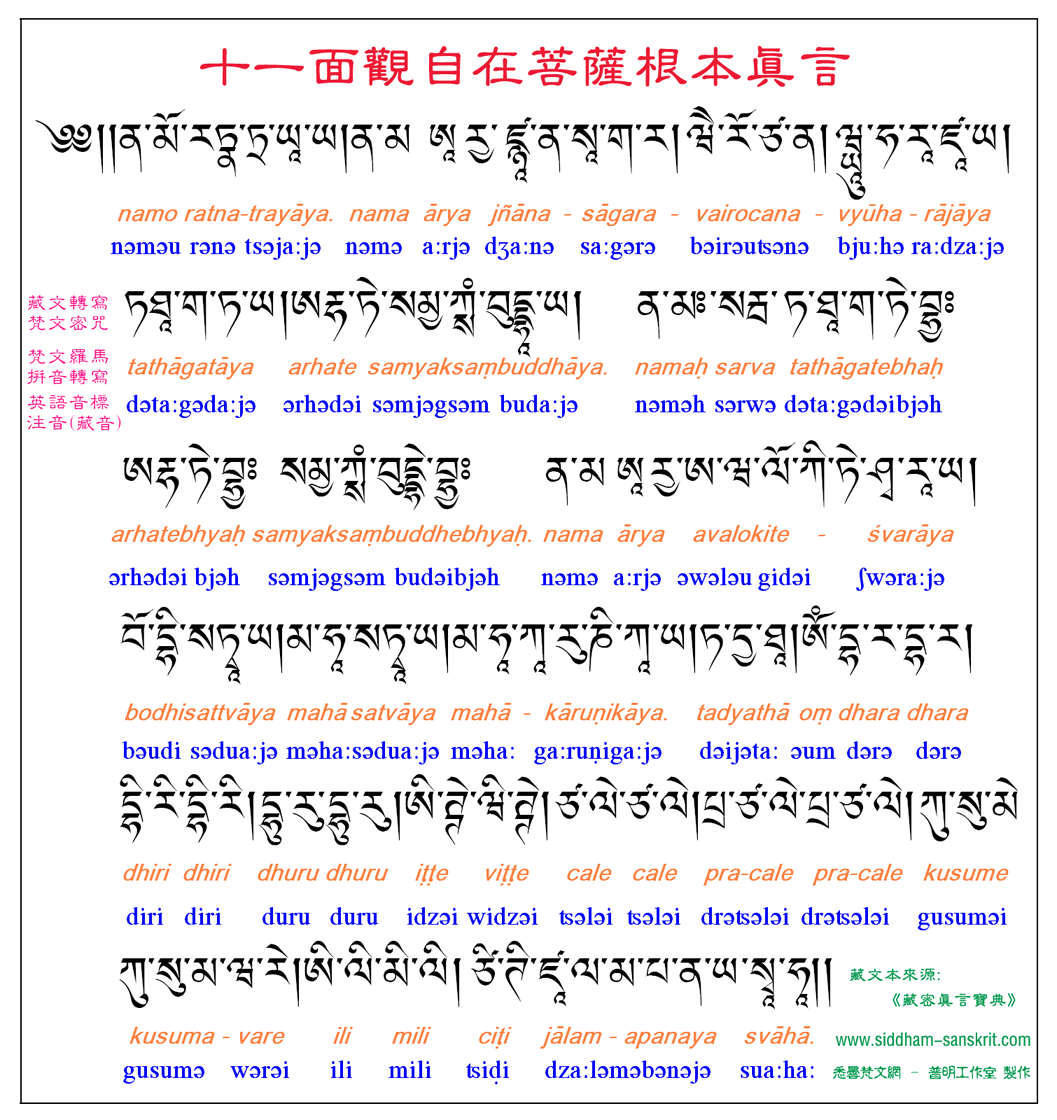 十一面觀自在菩薩根本眞言
༄༅།།ན་མོ་རཏྣ་ཏྲ་ཡཱ་ཡ།ན་མ ཨཱརྱ་ཛྙཱན་སཱ་ག་ར།ཝཻ་རོ་ཙ་ན། བྱཱུ་ཧ་རཱ་ཛཱ་ཡ།
namo ratna-trayāya. nama ārya jñāna - sāgara - vairocana - vyūha - rājāya
nəməu rənə tsəja:jə nəmə a:rjə dʒa:nə sa:gərə bəirəutsənə bju:hə ra:dza:jə
藏文轉寫
梵文密咒
ཏཐཱ་ག་ཏ་ཡ།ཨརྷ་ཏེ་སམྱ་ཀྶཾ་བུདྡྷཱ་ཡ། ན་མཿ་སརྦ་ཏ་ཐཱ་ག་ཏེ་བྷྱཿ
梵文羅馬
拼音轉寫
tathāgatāya arhate samyaksaṃbuddhāya. namaḥ sarva tathāgatebhaḥ
英語音標
注音(藏音)
dəta:gəda:jə ərhədəi səmjəgsəm buda:jə nəməh sərwə dəta:gədəibjəh
ཨརྷ་ཏེ་བྷྱཿ སམྱ་ཀྶཾ་བུདྡྷེ་བྷྱཿ ན་མ ཨཱརྱ་ཨ་ཝ་ལོ་ཀི་ཏེ་ཤྭ་རཱ་ཡ།
arhatebhyaḥ samyaksaṃbuddhebhyaḥ. nama ārya avalokite - śvarāya
ərhədəi bjəh səmjəgsəm budəibjəh nəmə a:rjə əwələu gidəi ʃwəra:jə
བོ་དྷི་སཏྭཱ་ཡ།མ་ཧཱ་སཏྭཱ་ཡ།མ་ཧཱ་ཀཱ་རུ་ཎི་ཀཱ་ཡ།ཏ་དྱ་ཐཱ།ཨོཾ་དྷ་ར་དྷ་ར།
bodhisattvāya mahā satvāya mahā - kāruṇikāya. tadyathā oṃ dhara dhara
bəudi sədua:jə məha:sədua:jə məha: ga:ruṇiga:jə dəijəta: əum dərə dərə
དྷི་རི་དྷི་རི།དྷུ་རུ་དྷུ་རུ།ཨི་ཊྚེ་ཝི་ཊྚེ།ཙ་ལེ་ཙ་ལེ།པྲ་ཙ་ལེ་པྲ་ཙ་ལེ།ཀུ་སུ་མེ
dhiri dhiri dhuru dhuru iṭṭe viṭṭe cale cale pra-cale pra-cale kusume
diri diri duru duru idzəi widzəi tsələi tsələi drətsələi drətsələi gusuməi
ཀུ་སུ་མ་ཝ་རེ།ཨི་ལི་མི་ལི། ཙི་ཊི་ཛཱ་ལ་མ་པ་ན་ཡ་སྭཱ་ཧཱ།།
藏文本來源:
《藏密眞言寶典》
kusuma - vare ili mili ciṭi jālam - apanaya svāhā.
www.siddham-sanskrit.com
gusumə wərəi ili mili tsiḍi dza:ləməbənəjə sua:ha:
悉曇梵文網 - 普明工作室 製作